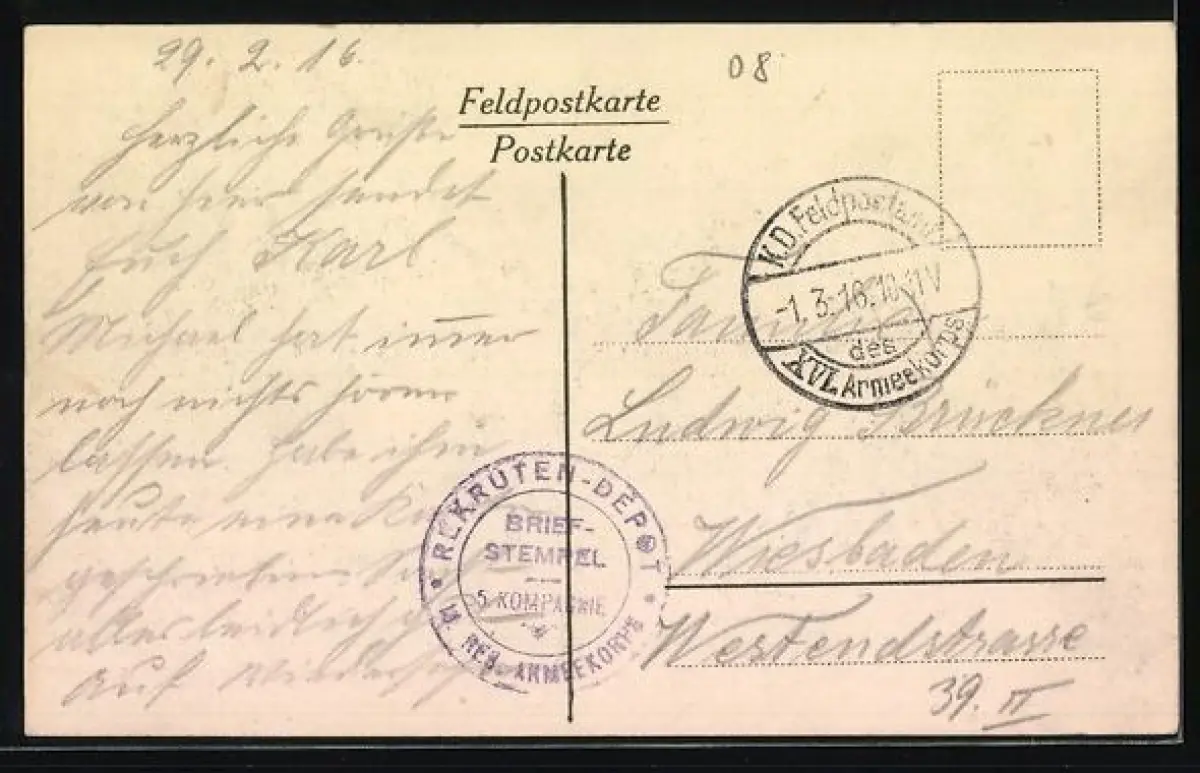 29. 2. 16.
08
Feldpostkarte
Postkarte
Herzliche Grüße
von hier sendet
Euch Karl.
Michael hat immer
noch nichts hören
lassen. Habe ihm
heute eine
geschrieben
alles leidlich
Auf Wiederseh
K.D. Feldpostamt
-1.3.16.10-11V
des
XVI. Armeekorps
Familie
Ludwig Brückner
Wiesbaden
Westendstrasse
39. II
REKRUTEN-DEPOT
BRIEF-
STEMPEL
5. KOMPAGNIE
RES. ARMEEKORPS